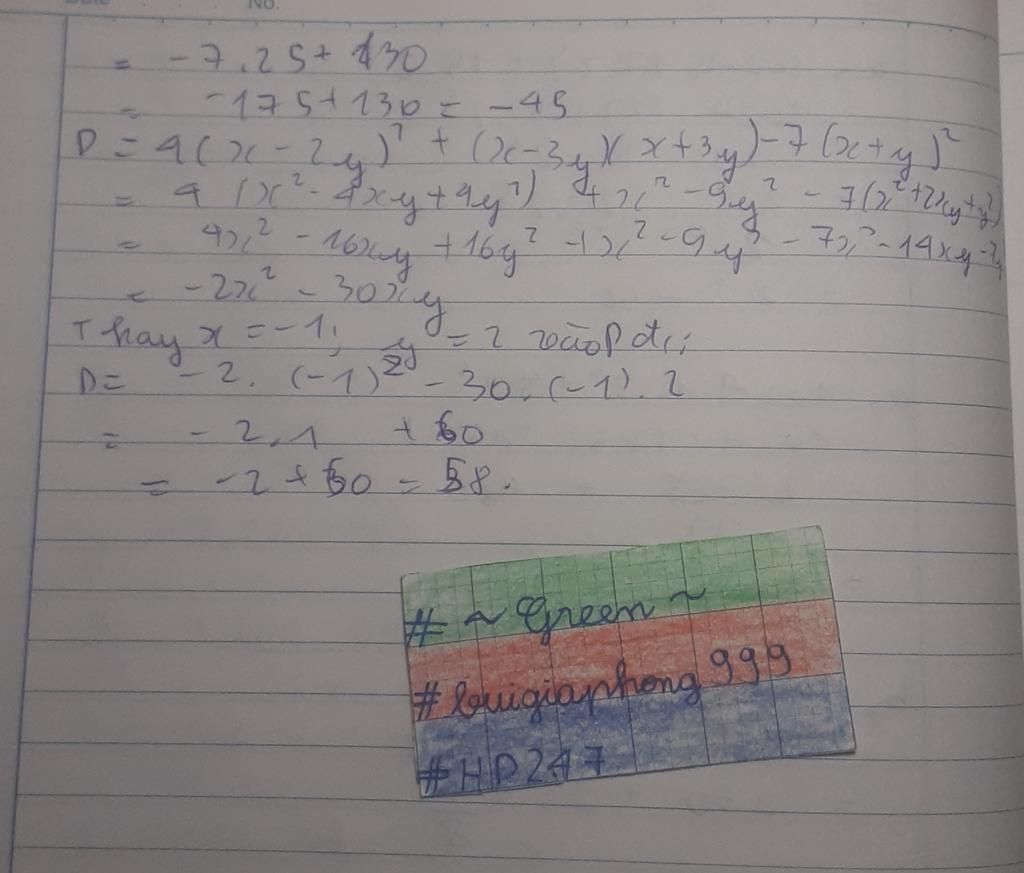 No.
= -7.25+130
= -175+130 = -45
D = 4(x-2y)² + (x-3y)(x+3y)-7(x+y)²
= 4(x²-4xy+4y²) + x²-9y² - 7(x²+2xy+y²)
= 4x² - 16xy + 16y² + x² - 9y² - 7x² - 14xy - 7y
= -2x² - 30xy
Thay x = -1; y = 2 vào D đc:
D = -2.(-1)² - 30.(-1).2
= -2.1 + 60
= -2+60 = 58.
# ~ Green ~
# buigiaphong 999
# HD247